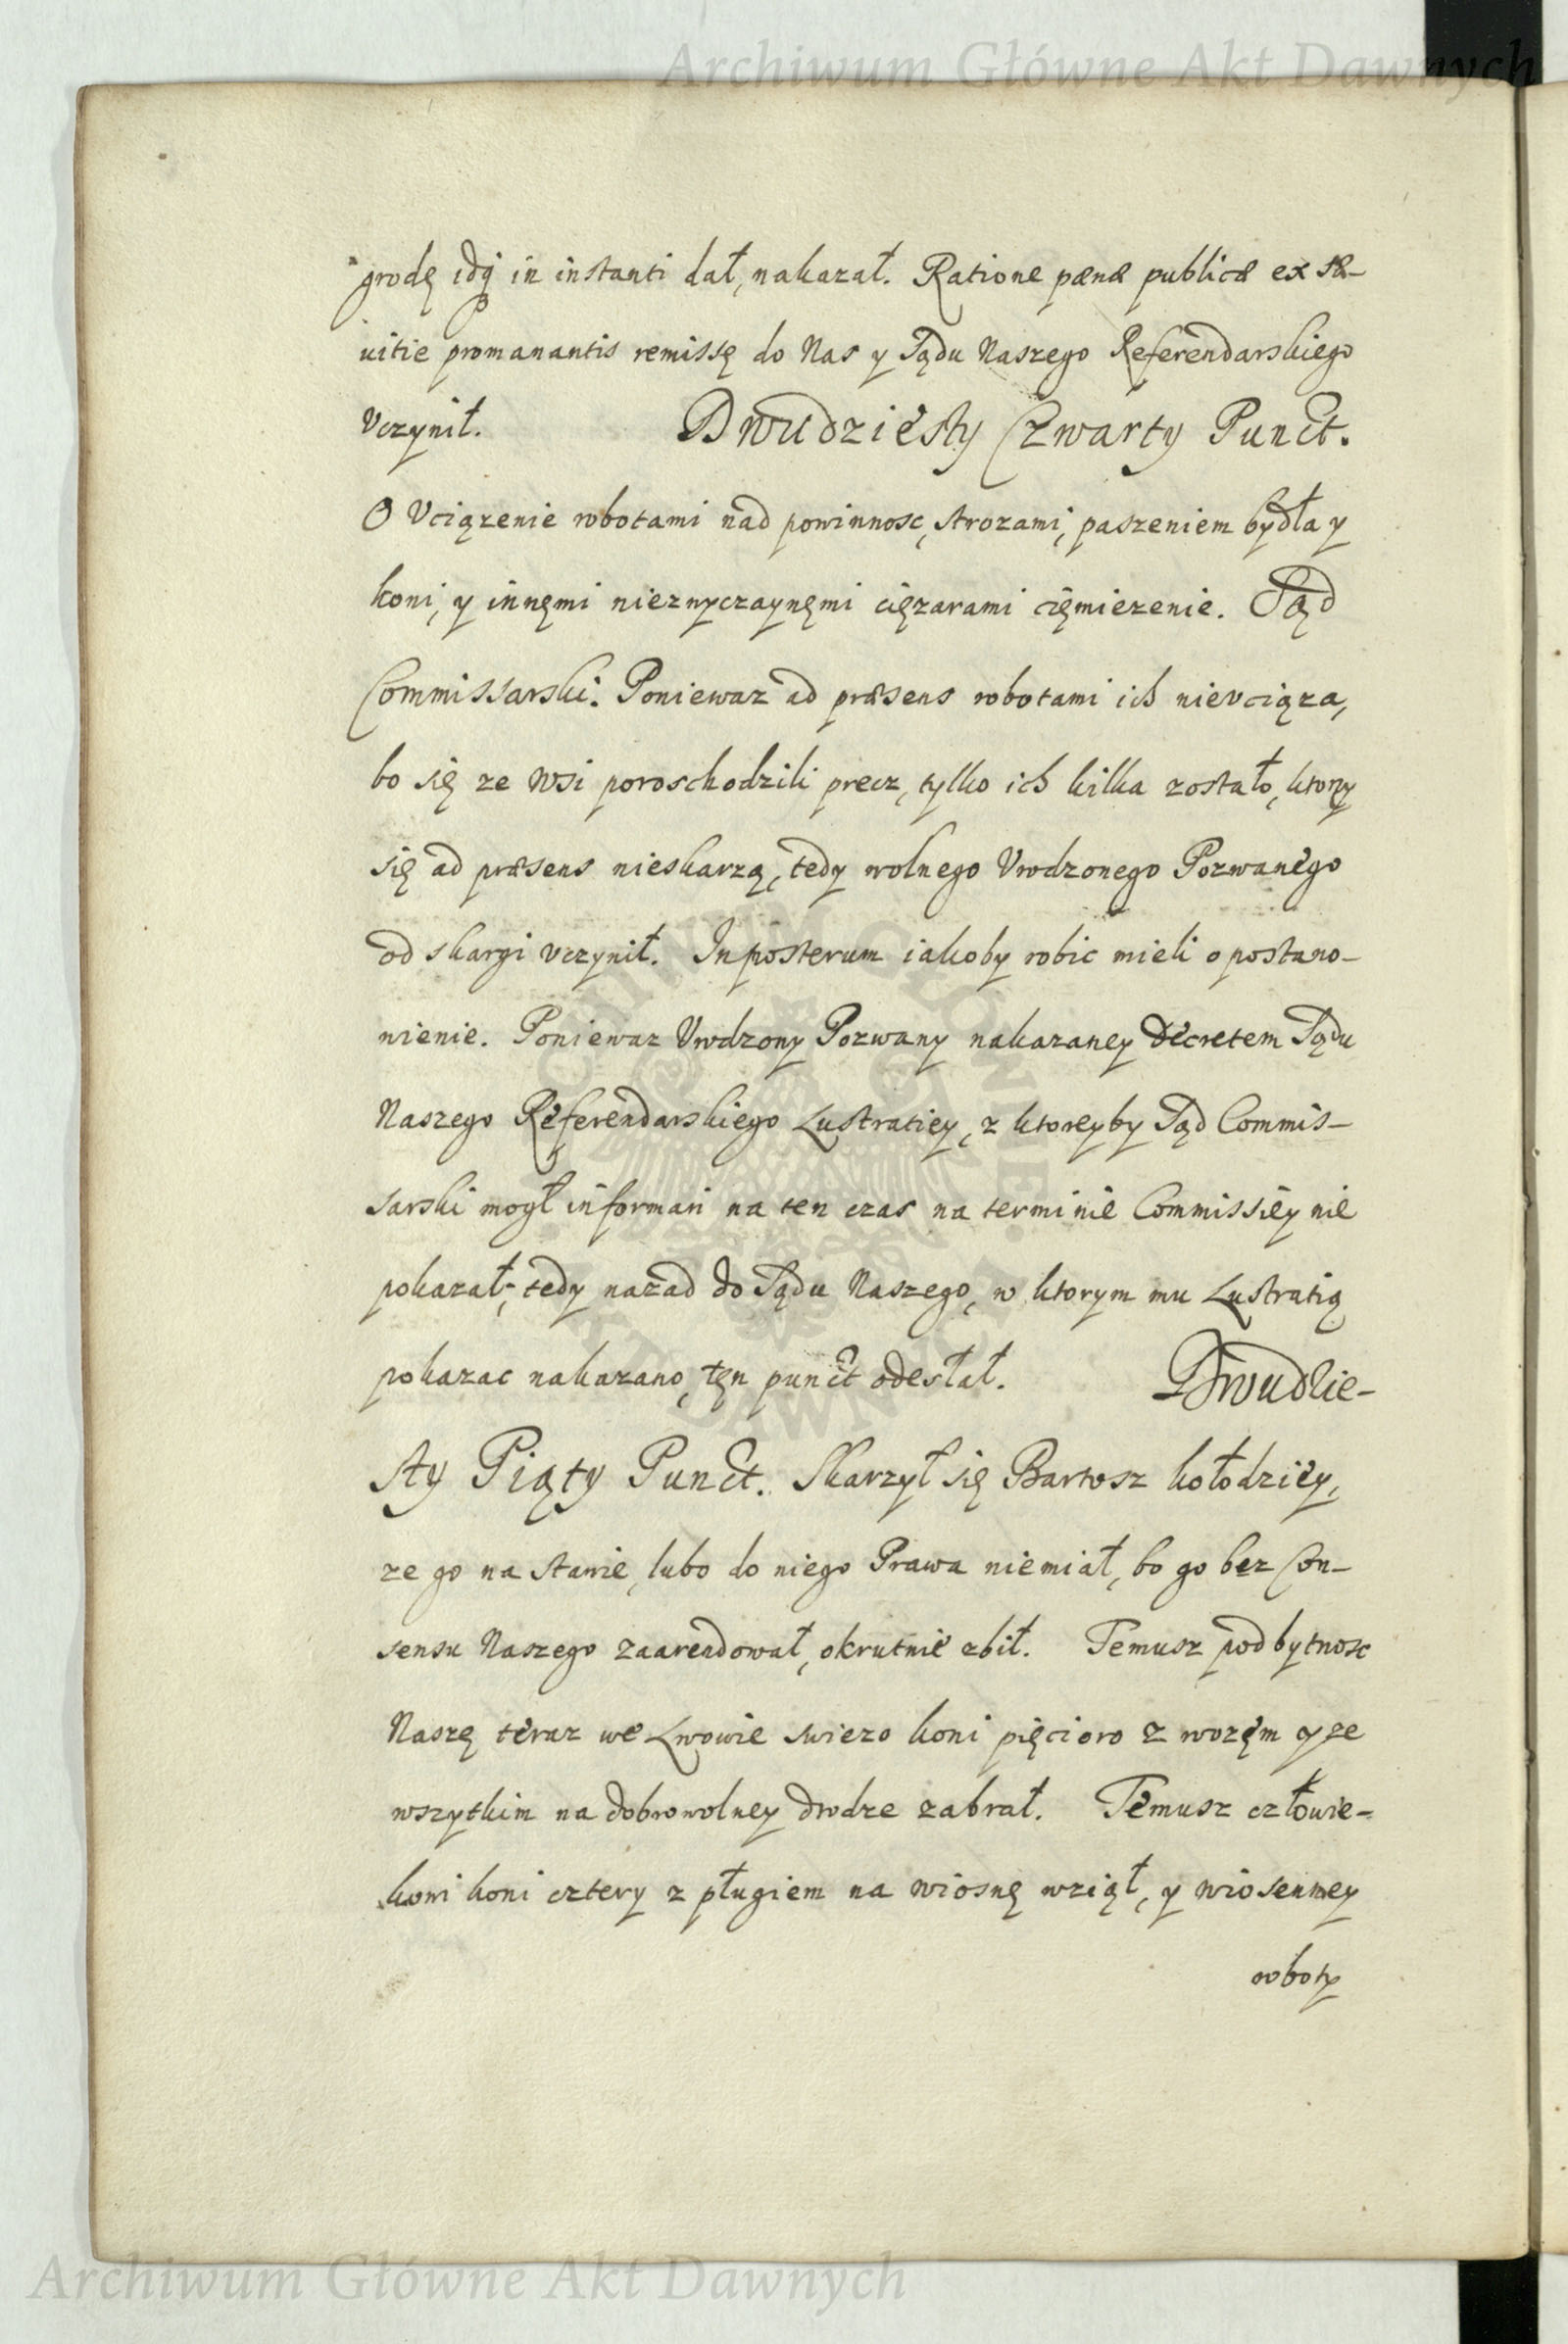 Archiwum Główne Akt Dawnych
grodę idą in instanti dał, nakazał. Ratione pænæ publicæ ex sæ-
uitie promanantis remissę do Nas y Sądu Naszego Referendarskiego
Vczynił. Dwudziesty Czwarty Punct.
O Vciązenie robotami nad powinnosc, strozami, paszeniem bydła y
koni, y innęmi niezwyczaynęmi cięzarami cięmiezenie. Sąd
Commissarski. Poniewaz ad præsens robotami ich nievciąza,
bo się ze wsi poroschodzili precz, tylko ich kilka zostało, ktorzy
się ad præsens nieskarzą, tedy wolnego Vrodzonego Pozwanego
od skargi vczynił. In posterum iakoby robic mieli o postano-
wienie. Poniewaz Vrodzony Pozwany nakazaney Decretem Sądu
Naszego Referendarskiego Lustratiey, z ktoreyby Sąd Commis-
sarski mogł informari na ten czas na terminie Commissiey nie
pokazał, tedy nazad do Sądu Naszego, w ktorym mu Lustratią
pokazac nakazano, tęn punct odesłał. Dwudzie-
sty Piąty Punct. Skarzył się Bartosz kołodziey,
ze go na stawie, lubo do niego Prawa niemiał, bo go bez Con-
sensu Naszego zaarendował, okrutnie zbił. Temusz pod bytnosc
Naszę teraz we Lwowie swiezo koni pięcioro z wozęm y ze
wszytkim na dobrowolney drodze zabrał. Temusz człowie-
kowi koni cztery z pługiem na wiosnę wziął, y wiosenney
roboty
Archiwum Główne Akt Dawnych